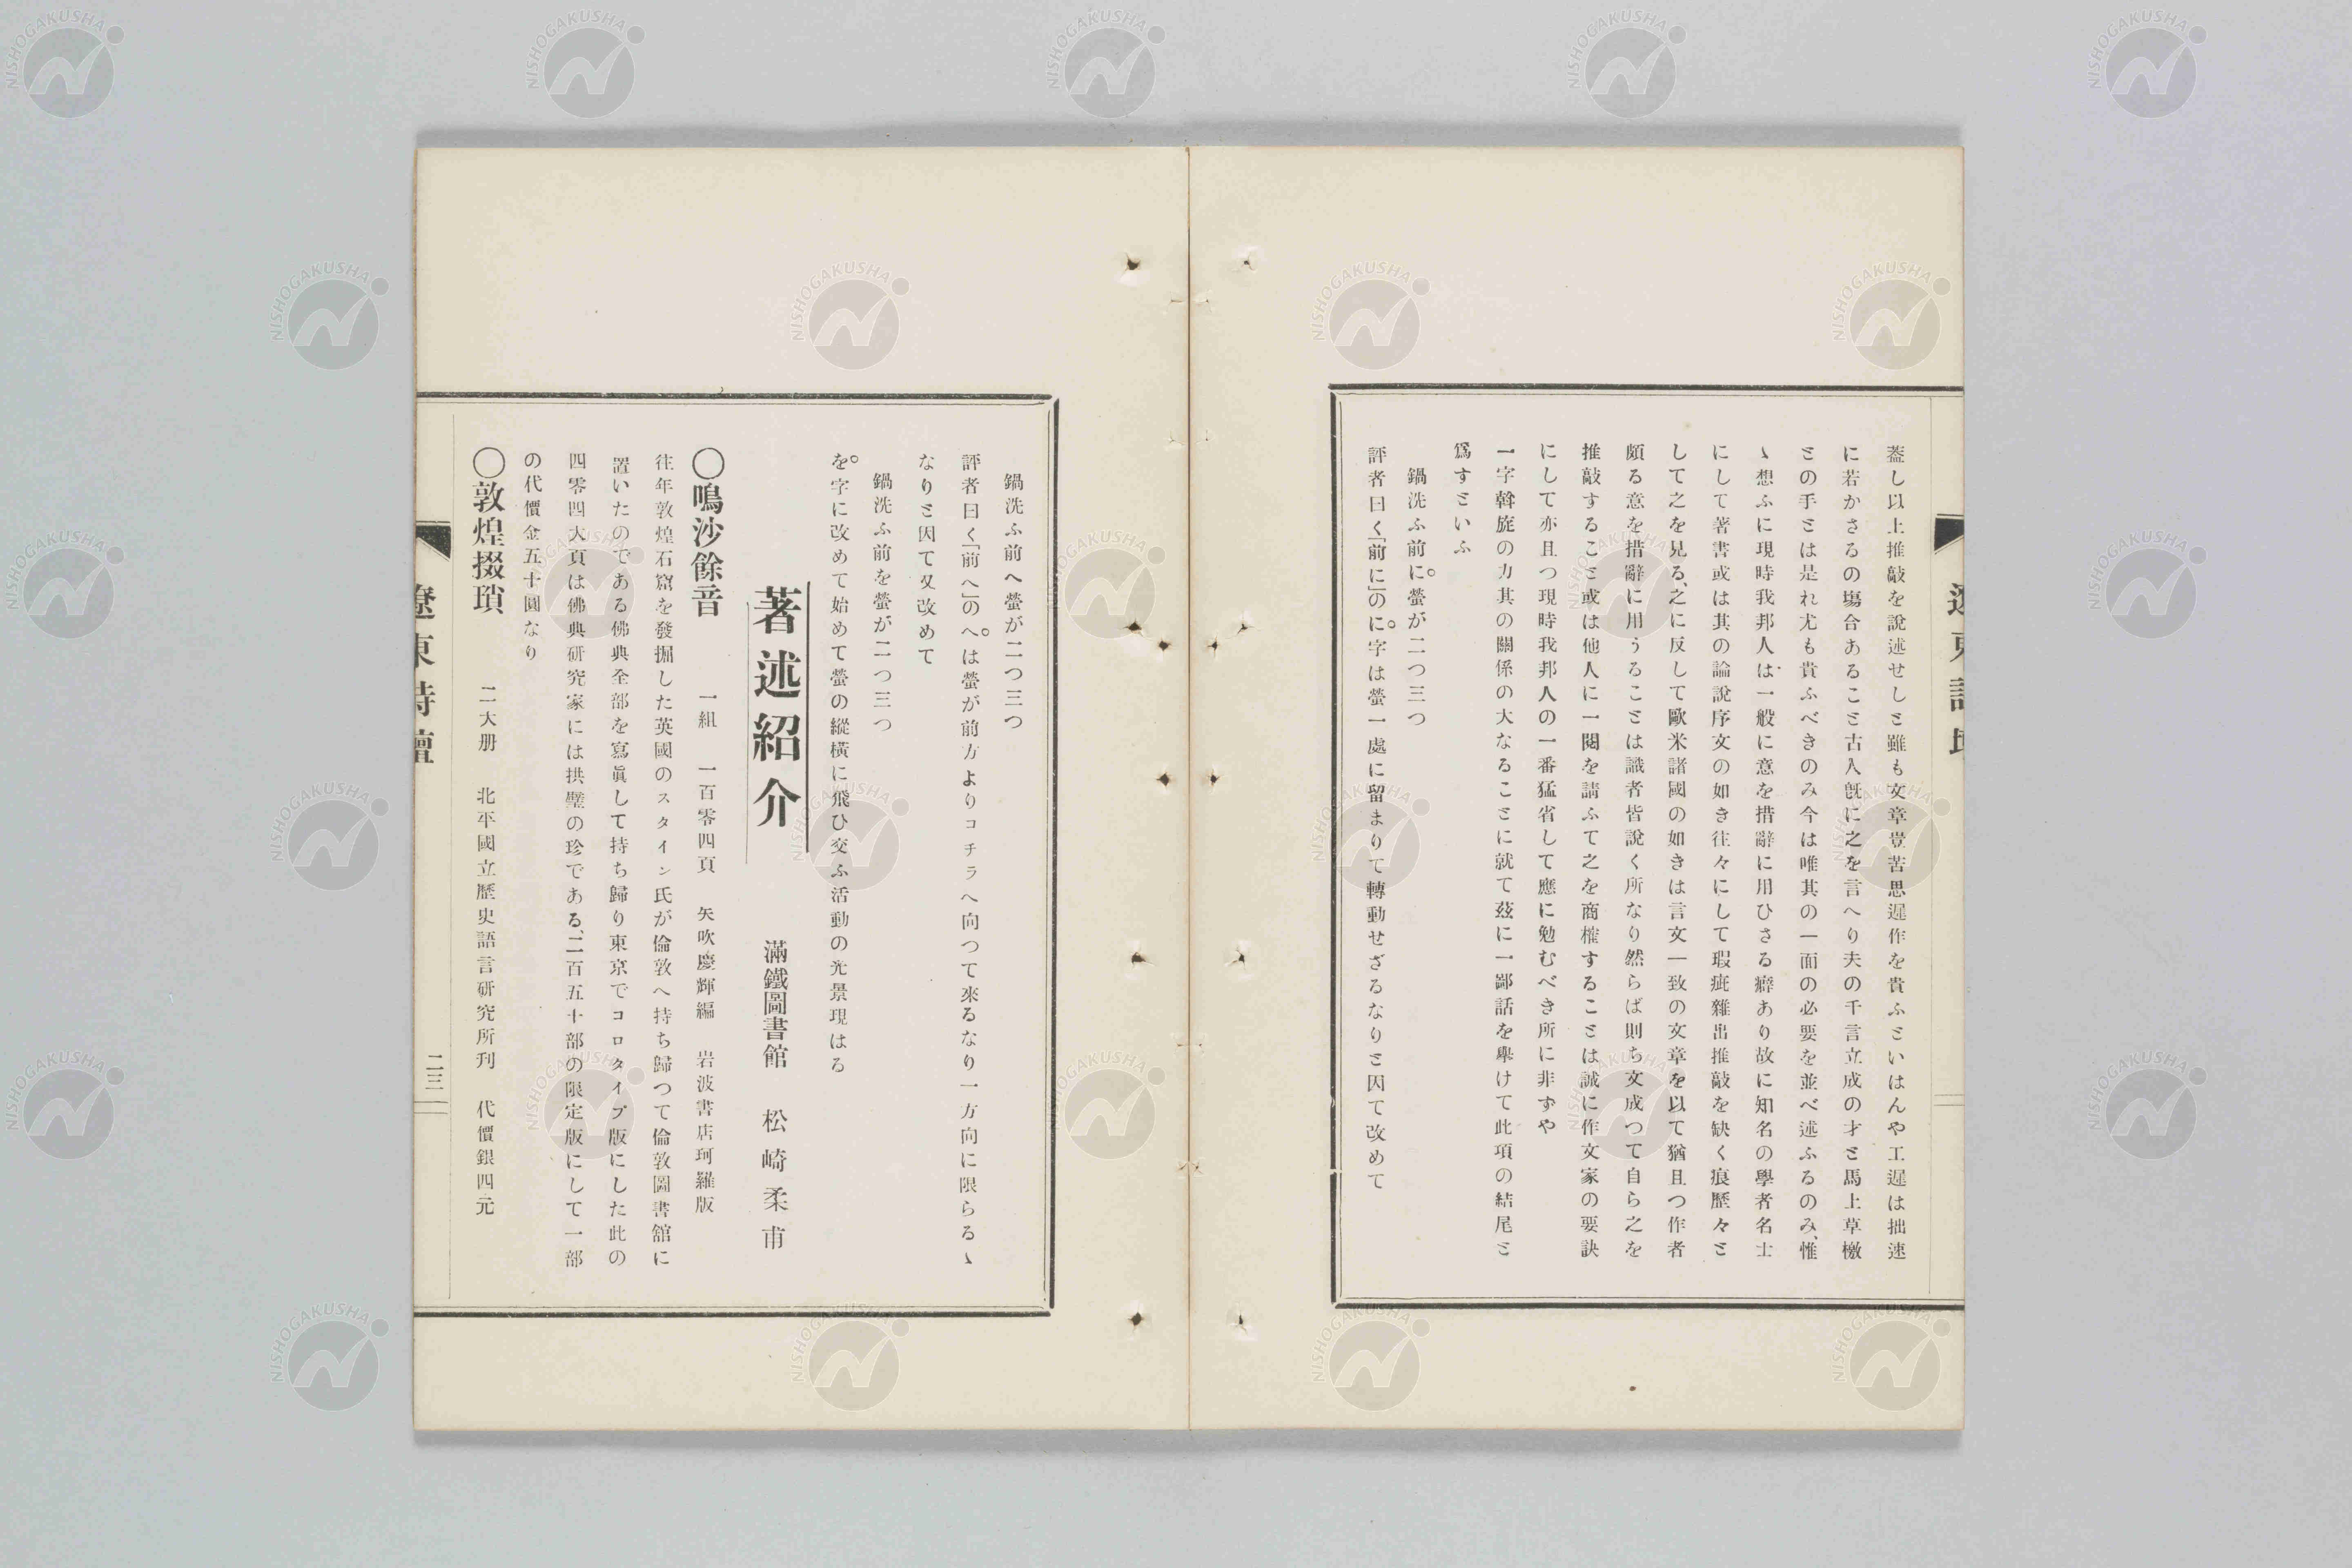 蓋し以上推敲を說述せしと雖も文章豈苦思遲作を貴ふといはんや工遲は拙速
に若かさるの塲合あること古人旣に之を言へり夫の千言立成の才と馬上草檄
との手とは是れ尤も貴ふべきのみ今は唯其の一面の必要を並べ述ふるのみ、惟
ゝ想ふに現時我邦人は一般に意を措辭に用ひさる癖あり故に知名の學者名士
にして著書或は其の論說序文の如き往々にして瑕疵雜出推敲を缺く痕歷々と
して之を見る、之に反して歐米諸國の如きは言文一致の文章を以て猶且つ作者
頗る意を措辭に用うることは識者皆說く所なり然らば則ち文成つて自ら之を
推敲すること或は他人に一閱を請ふて之を商榷することは誠に作文家の要訣
にして亦且つ現時我邦人の一番猛省して應に勉むべき所に非ずや
一字斡旋の力其の關係の大なることに就て茲に一鄙話を擧けて此項の結尾と
爲すといふ
鍋洗ふ前に螢が二つ三つ
評者曰く「前に」のに字は螢一處に留まりて轉動せざるなりと因て改めて
鍋洗ふ前へ螢が二つ三つ
評者曰く「前へ」のへは螢が前方よりコチラへ向つて來るなり一方向に限らるゝ
なりと因て又改めて
鍋洗ふ前を螢が二つ三つ
を字に改めて始めて螢の縱橫に飛ひ交ふ活動の光景現はる
著述紹介　滿鐵圖書館　松崎柔甫
○鳴沙餘音　一組　一百零四頁　矢吹慶輝編　岩波書店珂羅版
往年敦煌石窟を發掘した英國のスタイン氏が倫敦へ持ち歸つて倫敦圖書舘に
置いたのである佛典全部を寫眞して持ち歸り東京でコロタイプ版にした此の
四零四大頁は佛典研究家には拱璧の珍である、二百五十部の限定版にして一部
の代價金五十圓なり
○敦煌掇瑣　二大册　北平國立歷史語言研究所刋　代價銀四元
遼東詩壇
二三
NISHOGAKUSHA